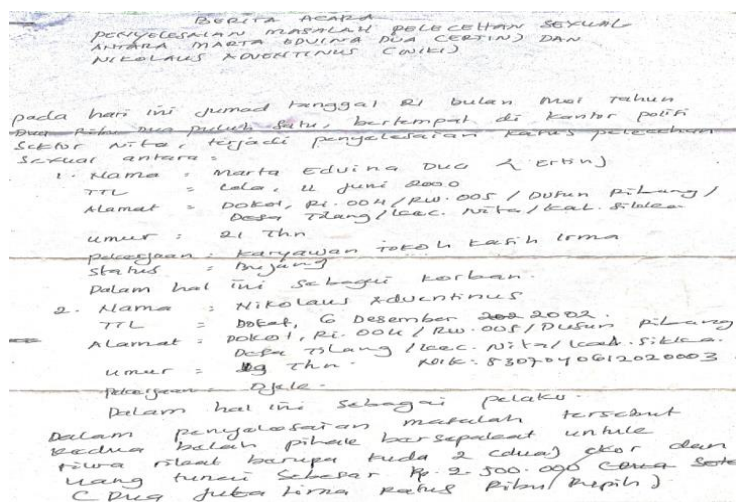 BERITA ACARA
PENYELESAIAN MASALAH PELECEHAN SEXUAL
ANTARA MARTA EDVINA DUA (ERTIN) DAN
NIKOLAUS ADVENTINUS (NIKI)
pada hari ini Jumad tanggal 21 bulan Mei Tahun
Dua Ribu Dua puluh Satu, bertempat di Kantor polisi
Sektor Nita, terjadi penyelesaian kasus pelecehan
Sexual antara :
1. Nama : Marta Edvina Dua (Ertin)
TTL = Lela, 11 Juni 2000
Alamat = DOKAT, Rt. 004 / RW. 005 / Dusun Pibang /
Desa Tilang / Kec. Nita / Kab. Sikka
umur : 21 Thn
pekerjaan : Karyawan Tokoh Kasih Irma
Status : Bujang
Dalam hal ini sebagai korban.
2. Nama : Nikolaus Adventinus
TTL = Dokat, 6 Desember 2002.
Alamat = DOKAT, Rt. 004 / RW. 005 / Dusun Pibang
Desa Tilang / Kec. Nita / Kab. Sikka.
umur = 19 Thn. NIK : 5307040612020003
pekerjaan = Ojek.
Dalam hal ini sebagai pelaku.
Dalam penyelesaian masalah tersebut
kedua belah pihak bersepakat untuk
berupa kuda 2 (dua) ekor dan
uang tunai sebesar Rp. 2.500.000
(Dua juta lima ratus Ribu Rupiah)